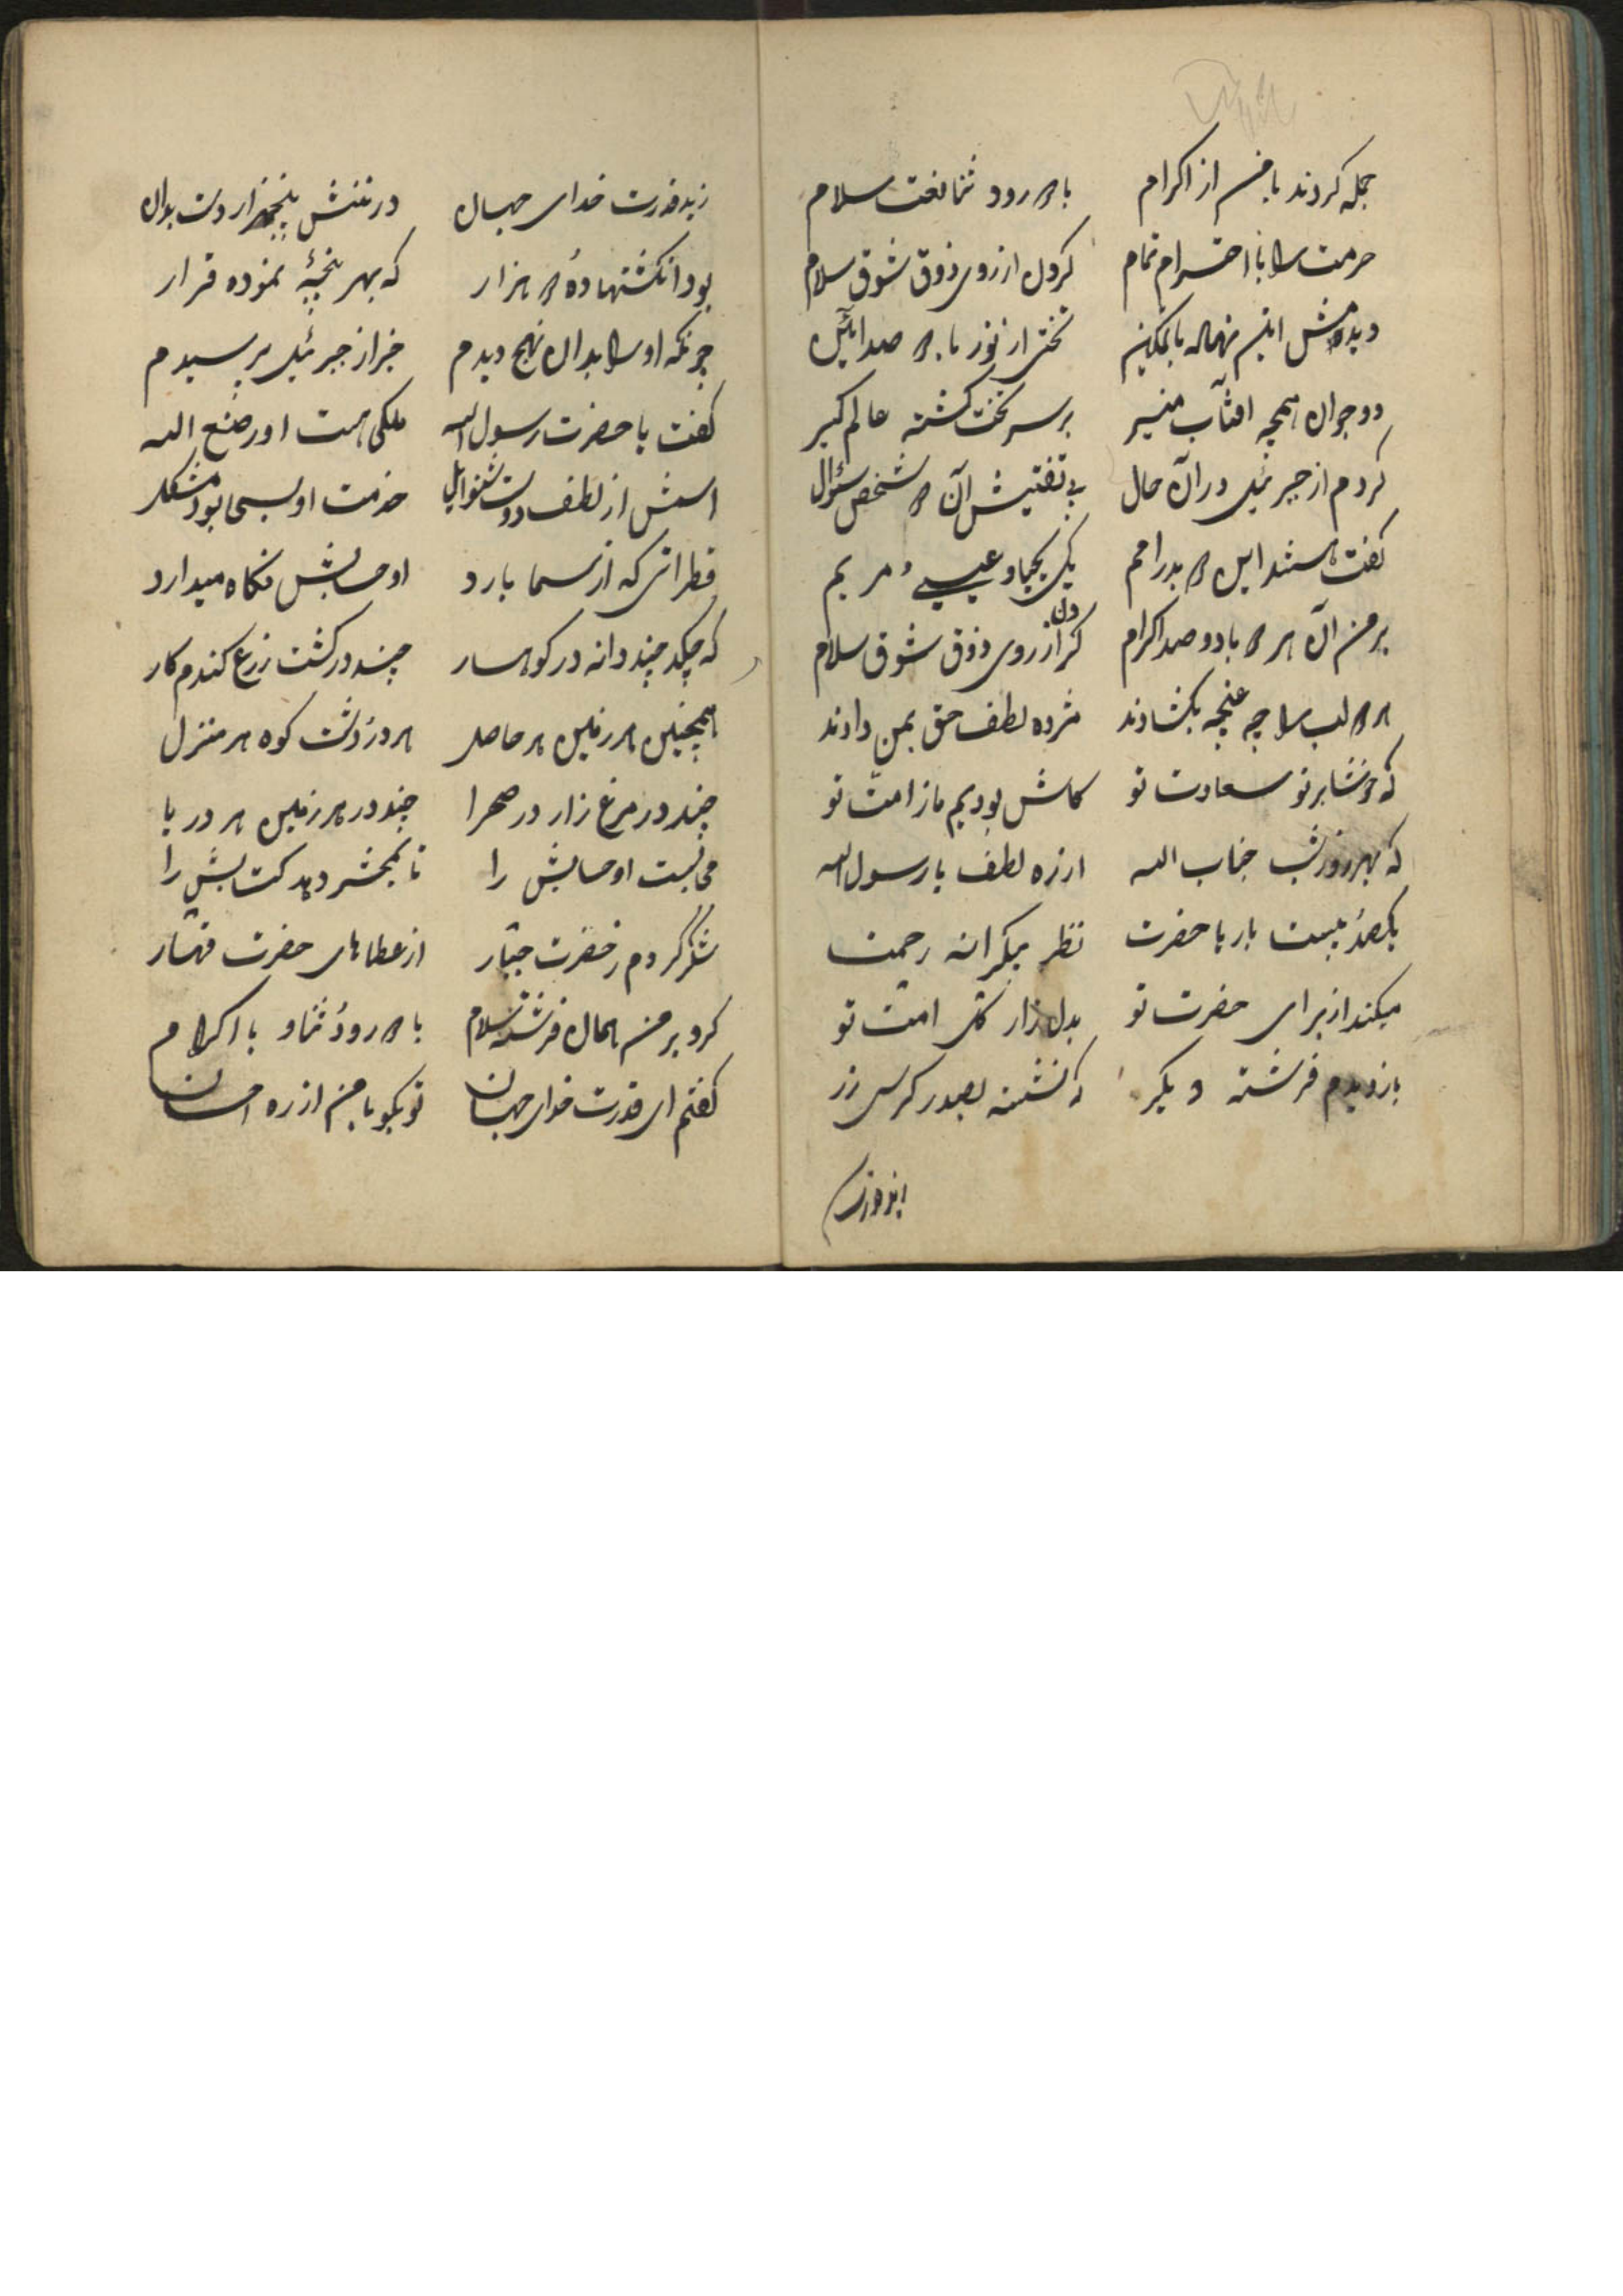 جمله کردند با من از اکرام با درود ثنا نعت سلام
حرمت را با احترام تمام کردن از روی ذوق شوق سلام
دیدمش این نهاله با تمکین تختی از نور با صد آئین
دو جوان همچه افتآب منیر برسر تخت کشته عالم کیر
کردم از جبرئیل در آن حال به تفتیش آن دو شخص سئوال
کفت هستند این دو بدر امم یکی یحیا و عیسی مریم
بر من آن هر دو با دو صد اکرام کردن از روی ذوق شوق سلام
هر دو لب را چه غنچه بکشادند مژده لطف حق بمن دادند
که خوشا بر تو سعادت تو کاش بودیم ما ز امت تو
که بهر روز شب جناب اله از ره لطف یا رسول اله
یکصد بیست بار یا حضرت نظر میکرانه رحمت
میکند از برای حضرت تو بدل زار کل امت تو
باز دیدم فرشته دیکر که نشسته بصدر کرسی زر
زید قدرت خدای جهان در تنش پنجهزار دست بدان
بود انکشتها ده هزار که بهر پنجهٔ نموده قرار
چونکه او را بدان نهج دیدم خبر از جبرئیل پرسیدم
کفت یا حضرت رسول اله ملکی هست او ز صنع اله
اسمش از لطف دوست خدمت او بسی بود مشکل
قطراتی که از سما بارد او حسابش نکاه میدارد
که چکد چند دانه در کوهسار چند در کشت زرع کندم کار
همچنین هر زمین هر حاصل هر در و دشت کوه هر منزل
چند در مرغ زار در صحرا چند در هر زمین هر دریا
می نبشت او حسابش را تا بمحشر دهد کتابش را
شکر کردم ز حضرت جبّار از عطاهای حضرت قهّار
کرد بر من همان فرشته سلام با درود ثنا و با اکرام
کفتم ای قدرت خدای جهان تو بکو با من از ره احسان